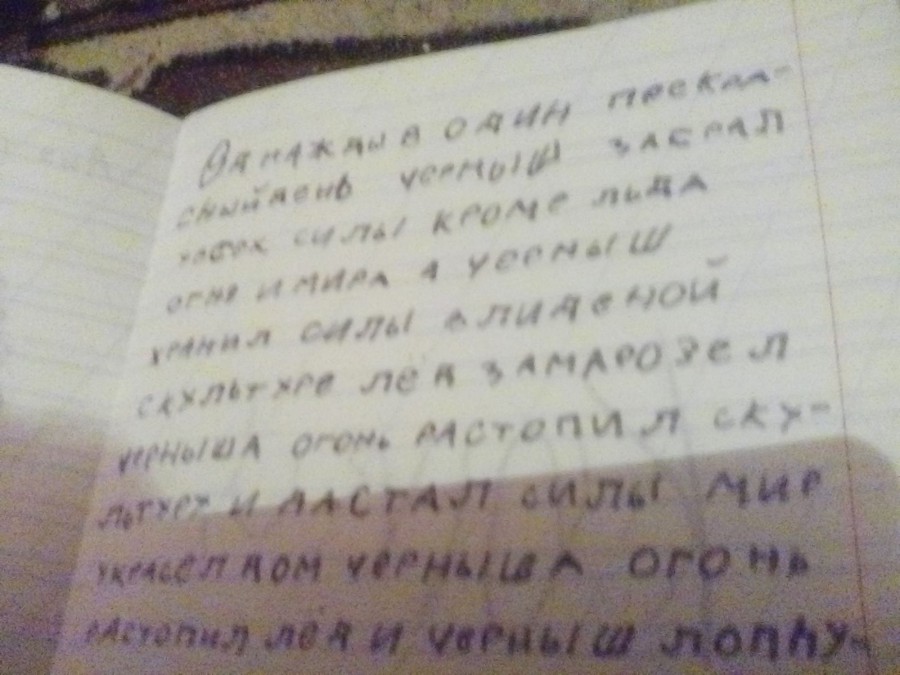 Однажды в один прекра-
сныйдень черныш забрал
силы кроме льда
огня и мира а черныш
хранил силы в лидвной
скультуре лёд замарозел
черныша огонь растопил ску-
льтуру и дастал силы мир
украсел дом черныша огонь
растопил лёд и черныш лоппу-